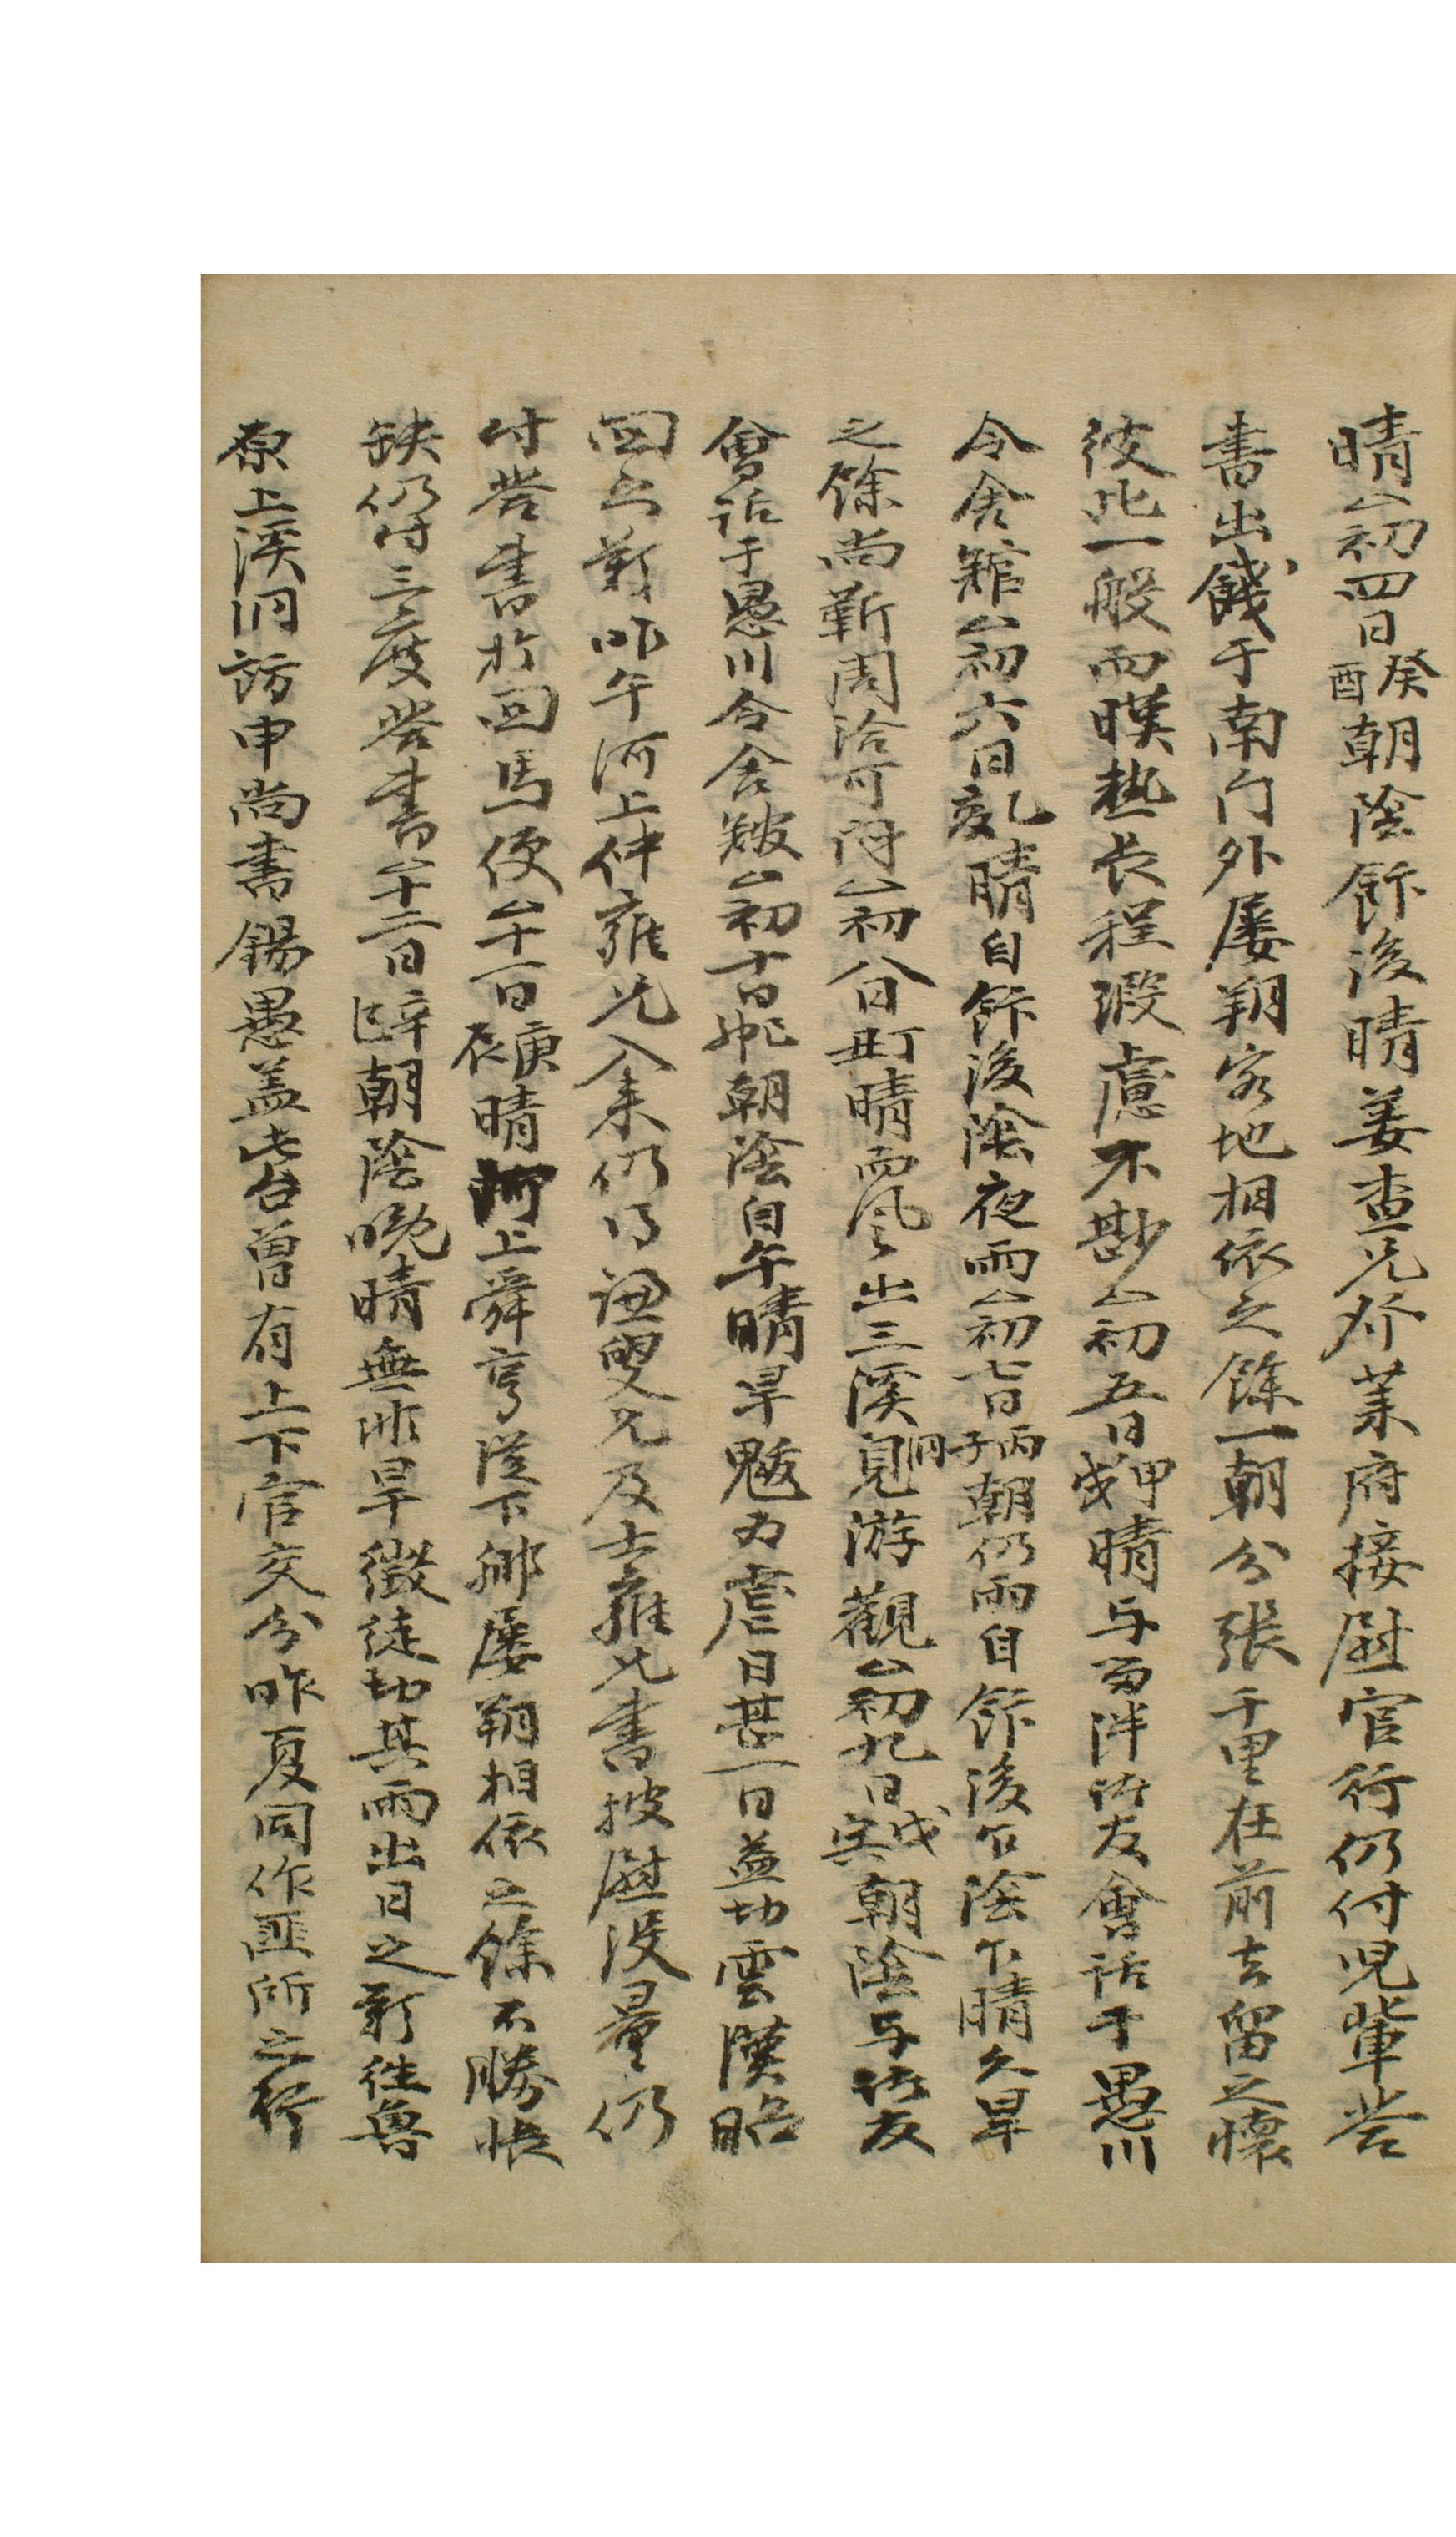 晴△初四日癸酉朝陰飰後晴姜查兄 發 萊府接慰官行仍付児輩答
書出餞于南门外屡朔客地相依之餘一朝分張千里在前去留之懷
彼此一般而暵热长程瑕慮不尠△初五日甲戌晴与留泮诸友會话于愚川
令舍館△初六日乙亥晴自飰後陰夜雨△初七日丙子朝仍雨自飰後乍陰乍晴久旱
之餘尚靳周洽可闷△初八日丁丑晴而風出三溪洞見游觀△初九日戊寅朝陰与诸友
會话于愚川令舍△初十日己卯朝陰自午晴旱魃为虐日甚一日益切雲漢昭
回之歎昨午河上仲雍兄入来仍得 叟兄及士雍兄書披慰没量仍
付答書於回馬便△十一日庚辰晴河上舜亨从下鄉屡朔相依之餘不勝悵
缺仍付三度答書△十二日辛巳朝陰晚晴無非旱徵徒切其雨出日之歎往魯
原上溪洞訪申尚書錫愚盖此台曾有上下官交分昨夏同作匪所之行